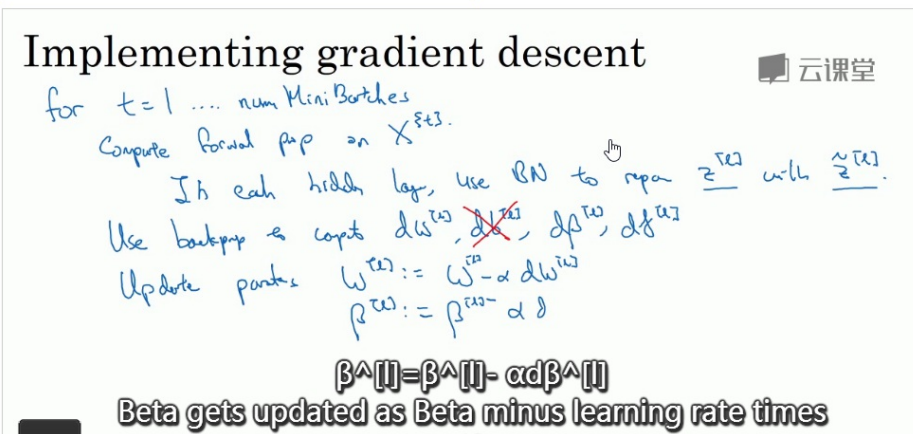 Implementing gradient descent
云课堂
for t=1 .... num MiniBatches
Compute forward prop on X^{t}.
In each hidden lay, use BN to repar z^[l] with z̃^[l].
Use backprop to compt dw^[l], db^[l], dβ^[l], dγ^[l]
Update parates w^[l] := w^[l] - α dw^[l]
β^[l] := β^[l] - α d
β^[l]=β^[l]- αdβ^[l]
Beta gets updated as Beta minus learning rate times